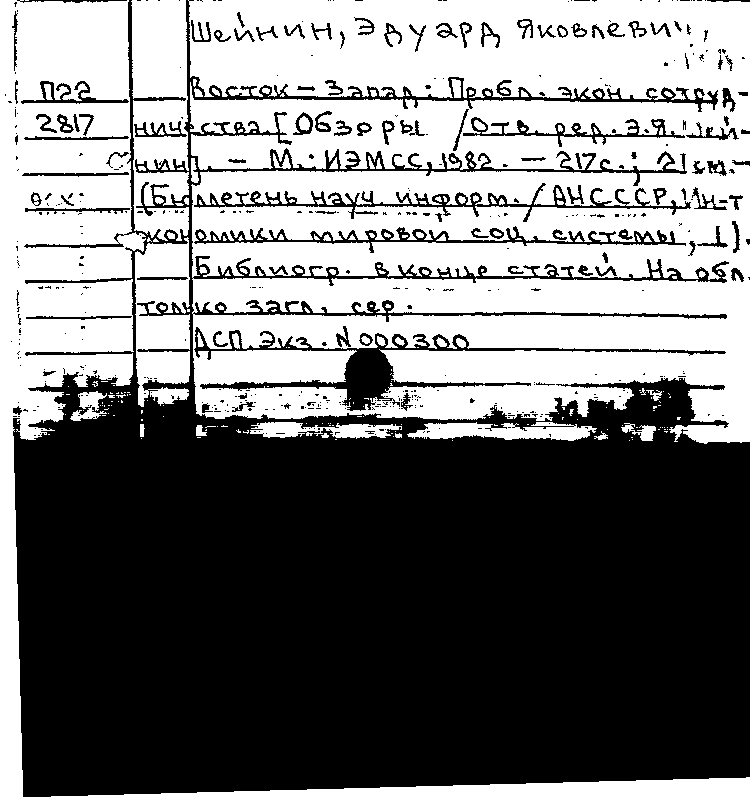 Шейнин, Эдуард Яковлевич,
ред.
П22 Восток – Запад: Пробл. экон. сотруд-
2817 ничества. [Обзоры / Отв. ред. Э.Я. Шей-
нин]. – М.: ИЭМСС, 1982. – 217с.; 21см. –
(Бюллетень науч. информ. / АН СССР, Ин-т
экономики мировой соц. системы; 1).
Библиогр. в конце статей. На обл.
только загл. сер.
ДСП. Экз. N 000300